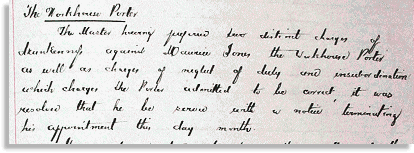 The Workhouse Porter
The Master having prepared two distinct charges of
drunkenness against Maurice Jones the Workhouse Porter
as well as charges of neglect of duty and insubordination
which charges the Porter admitted to be correct, it was
resolved that he be served with a notice terminating
his appointment this day month.